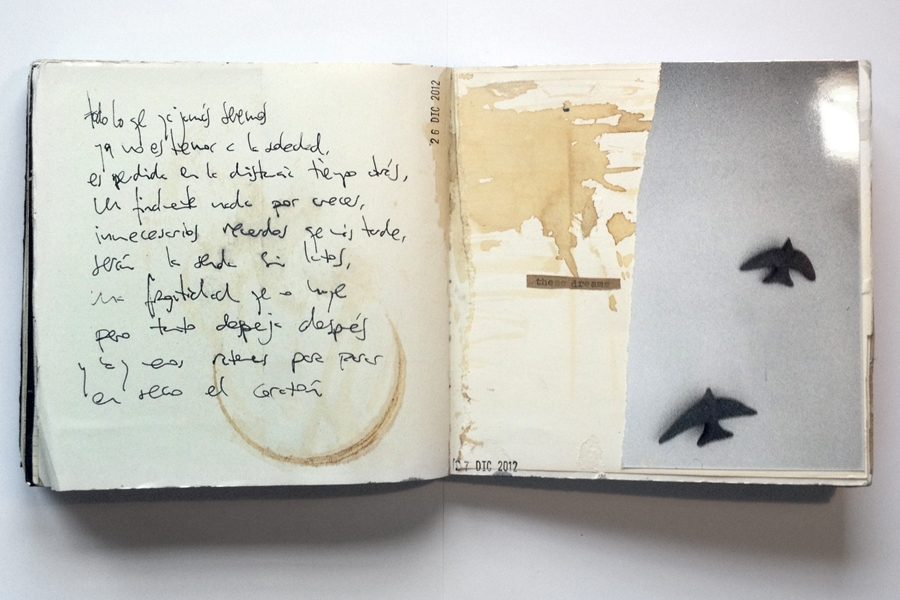 todo lo que ya jamás seremos
ya no es temor a la soledad,
es perdida en la distancia tiempo atrás,
un nada por crecer,
innecesarios recuerdos que más tarde,
serán la senda sin
fragilidad que
pero tanto despeja después
para parar
en seco el corazón
26 DIC 2012
these dreams
27 DIC 2012